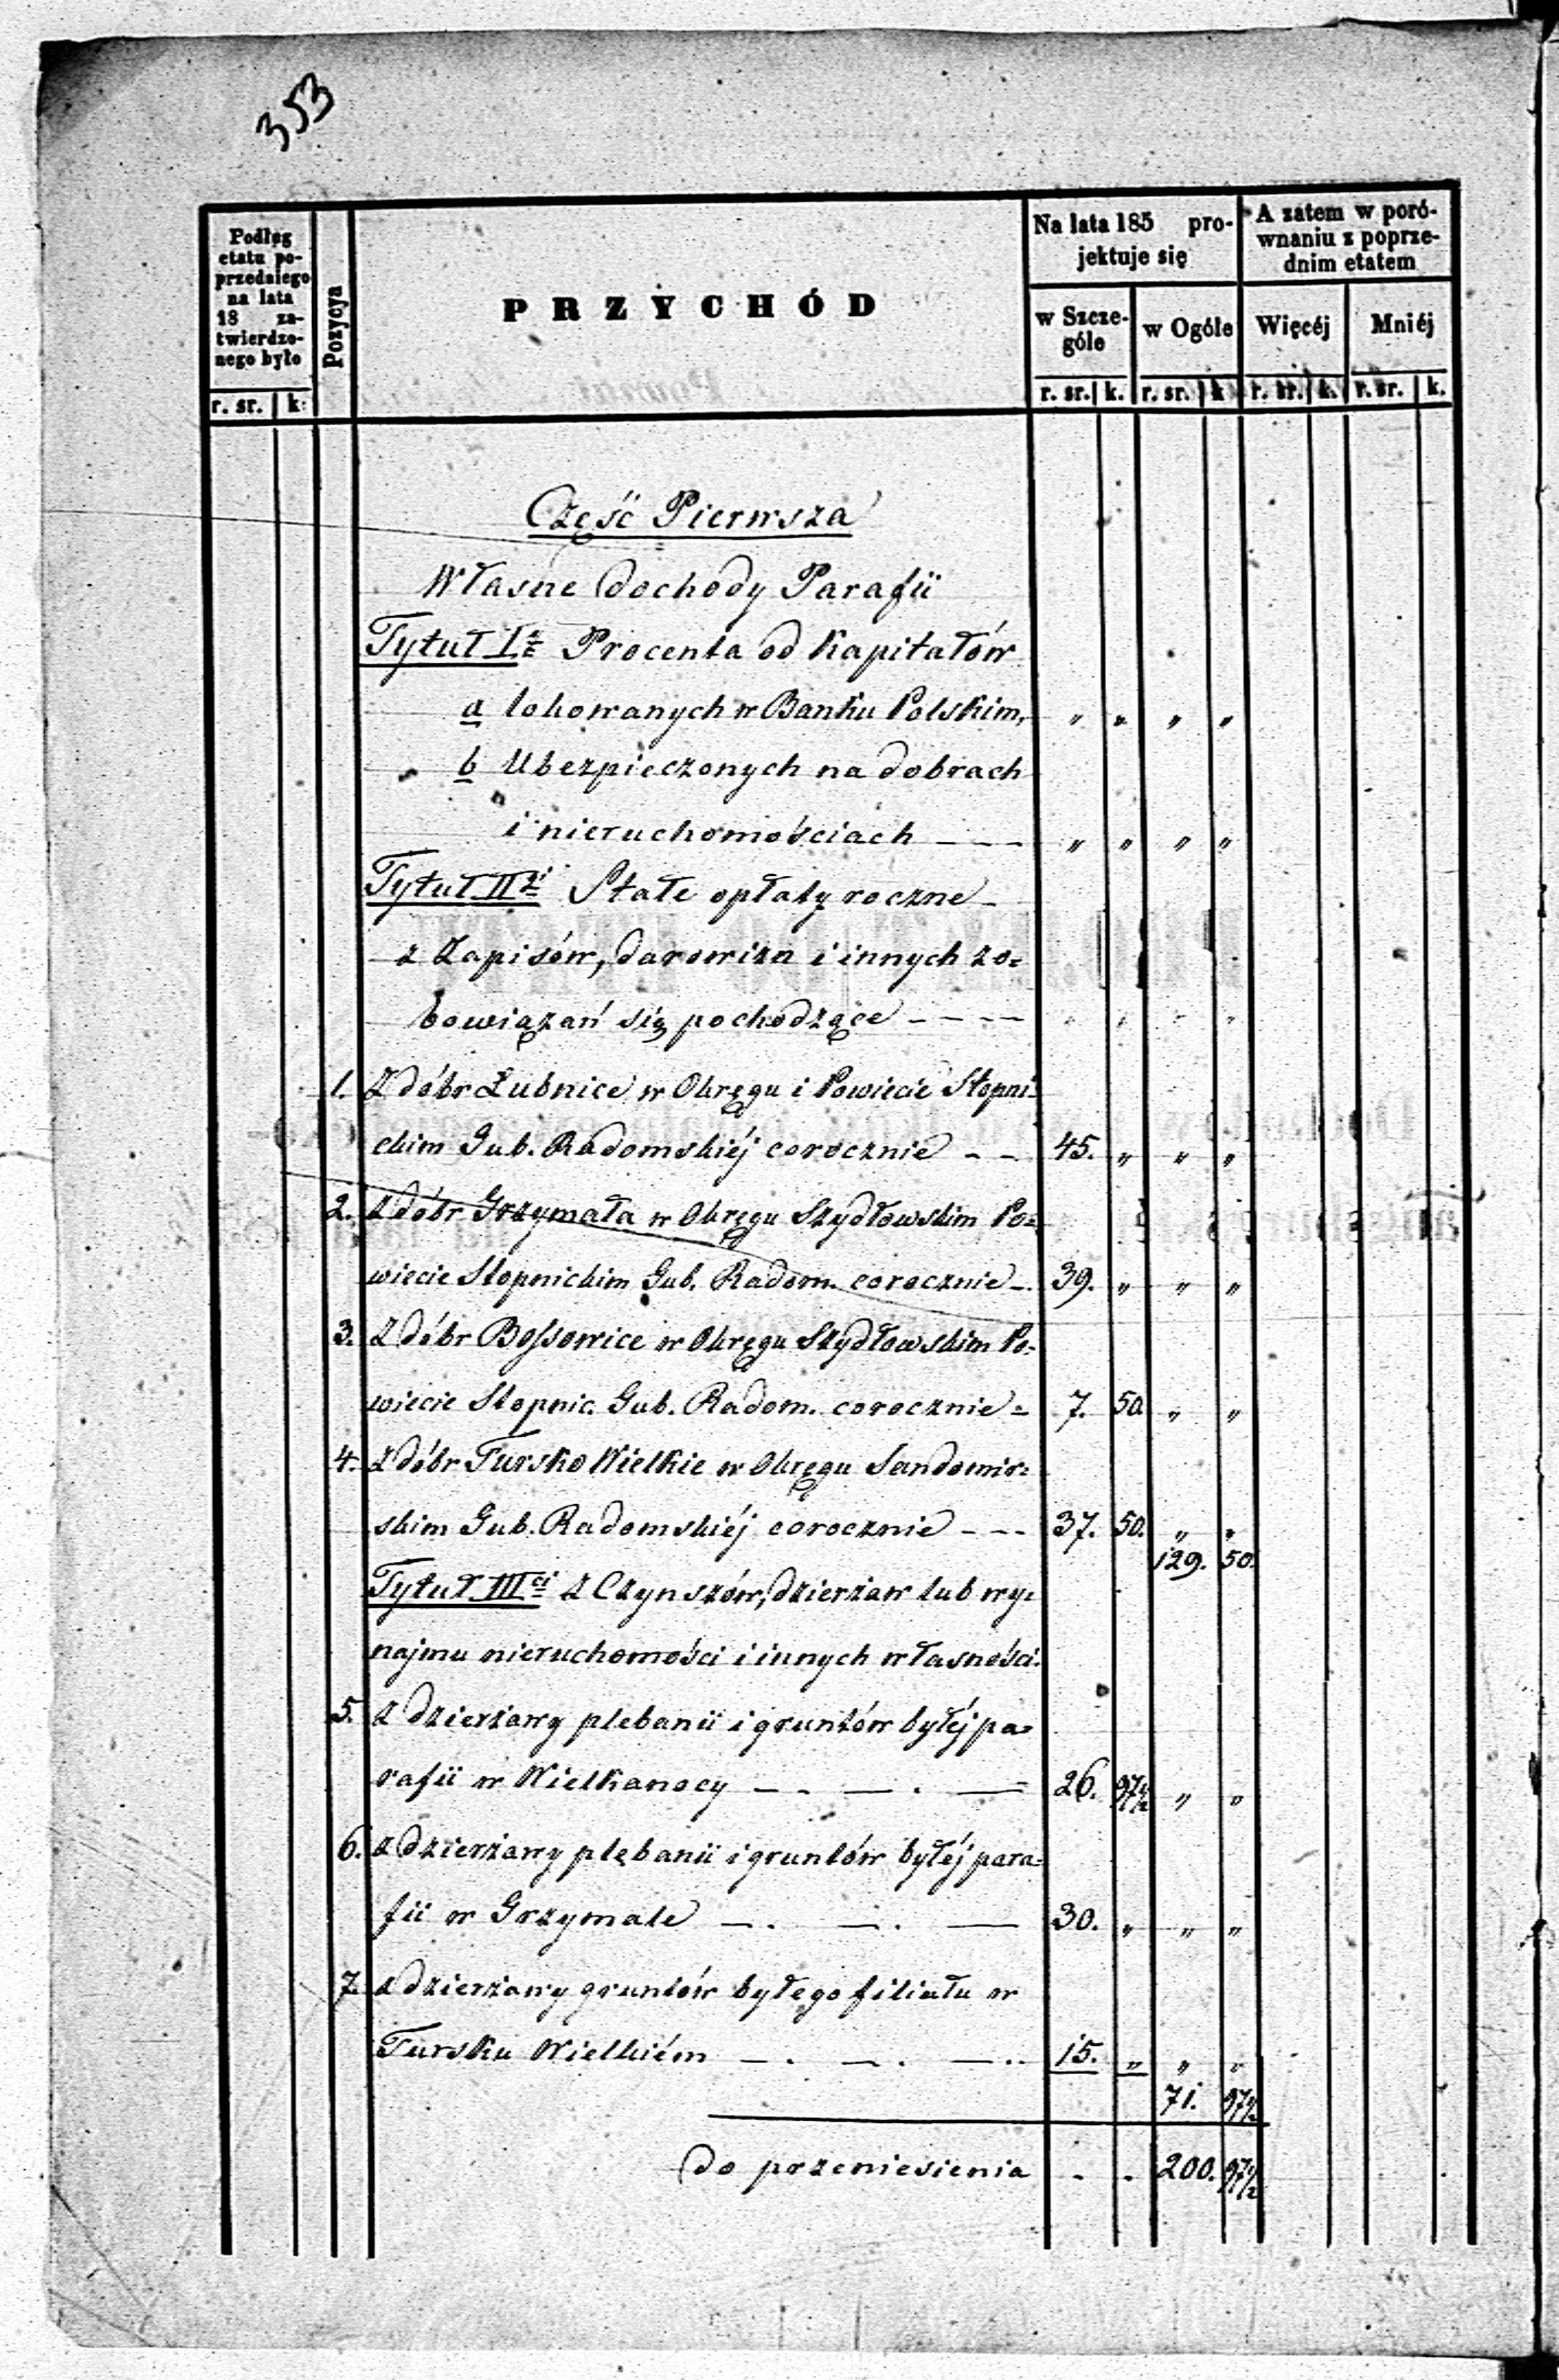 353
Podług
etatu po-
przedniego
na lata
18 za-
twierdzo-
nego było
r. sr. k:
Pozycya
PRZYCHÓD
Na lata 185 pro-
jektuje się
w Szcze-
góle
r. sr. k.
w Ogóle
r. sr. k
A zatem w poró-
wnaniu z poprze-
dnim etatem
Więcéj
r. sr. k.
Mniéj
r. sr. k.
Część Pierwsza
Własne dochody Parafii
Tytuł I Procenta od Kapitałów
a lokowanych w Banku Polskim, „ „ „ „
b Ubezpieczonych na dobrach
i nieruchomościach - - - „ „ „ „
Tytuł II Stałe opłaty roczne
z Zapisów, darowizn i innych zo=
bowiązań się pochodzące - - - -
1. Z dóbr Łubnice w Okręgu i Powiecie Stopni=
ckim Gub. Radomskiéj corocznie - - 45. „ „ „
2. Z dóbr Grzymała w Okręgu Szydłowskim Po=
wiecie Stopnickim Gub. Radom. corocznie -. 39. „ „ „
3. Z dóbr Bossowice w Okręgu Szydłowskim Po=
wiecie Stopnic. Gub. Radom. corocznie - 7. 50 „ „
4. Z dóbr Tursko Wielkie w Okręgu Sandomir=
skim Gub. Radomskiéj corocznie - - - 37. 50. „ „
129. 50.
Tytuł III Z Czynszów, dzierżaw lub wy=
najmu nieruchomości i innych własności.
5. Z dzierżawy plebanii i gruntów byłéj pa=
rafii w Wielkanocy - . - . - 26. 97½ „ „
6. Z dzierżawy plebanii i gruntów byłéj para=
fii w Grzymale - . - . - 30. „ „ „
7. Z dzierżawy gruntów byłego filiału w
Tursku Wielkiém - . - . - .. 15. „ „ „
71. 97½
do przeniesienia - - 200. 97½